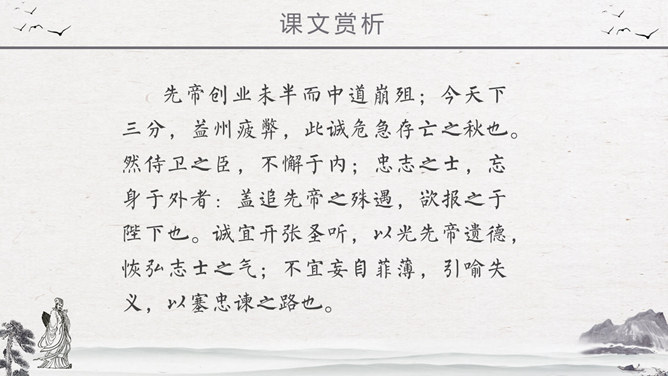 课文赏析
先帝创业未半而中道崩殂；今天下
三分，益州疲弊，此诚危急存亡之秋也。
然侍卫之臣，不懈于内；忠志之士，忘
身于外者：盖追先帝之殊遇，欲报之于
陛下也。诚宜开张圣听，以光先帝遗德，
恢弘志士之气；不宜妄自菲薄，引喻失
义，以塞忠谏之路也。